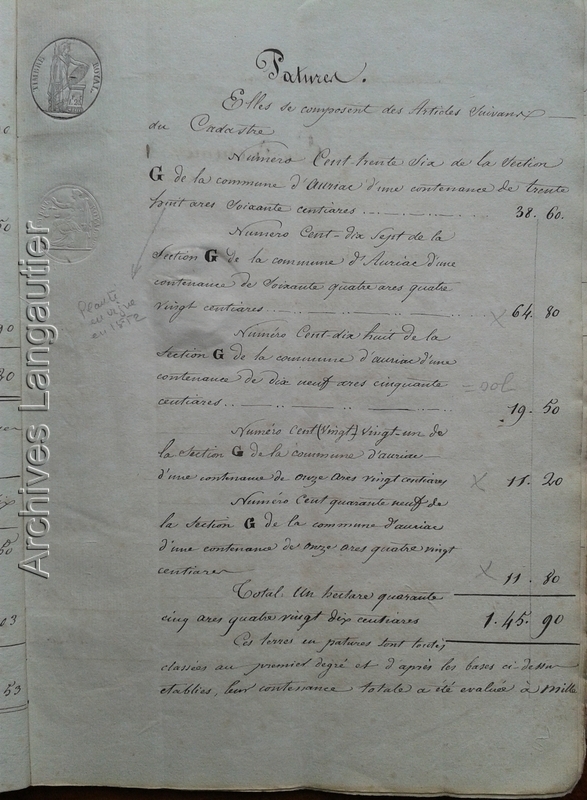 TIMBRE ROYAL.
Patures.
Elles se composent des Articles Suivans
du Cadastre
Numéro Cent trente Six de la Section
G de la commune d'auriac d'une contenance de trente
huit ares Soixante centiares 38. 60.
Numéro Cent-dix Sept de la
Section G de la commune d'Auriac d'une
contenance de Soixante quatre ares quatre
vingt centiares x 64. 80
Planté
en vigne
en 1852
Numéro Cent-dix huit de la
Section G de la commune d'auriac d'une
contenance de dix neuf ares cinquante
= sol
centiares 19. 50
Numéro Cent (Vingt) Vingt-un de
la Section G de la commune d'auriac
d'une contenance de onze ares vingt centiares x 11. 20
Numéro Cent quarante neuf de
la Section G de la commune d'auriac
d'une contenance de onze ares quatre vingt
centiares x 11. 80
Total. un hectare quarante
cinq ares quatre vingt dix centiares 1. 45. 90
Ces terres en patures sont toutes
classées au premier dégré et d'après les bases ci-dessu
etablies, leur contenance totale a été évaluée à mille
Archives Langautier